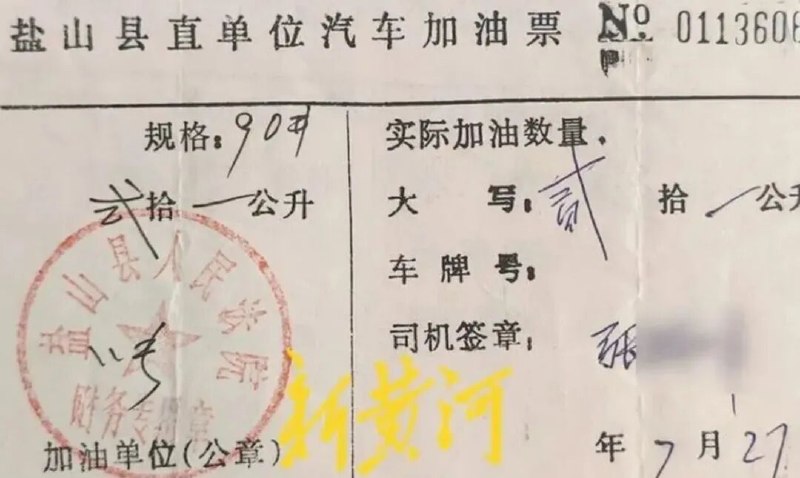 盐山县直单位汽车加油票 № 0113606
规格：90#
贰拾一公升
盐山县人民法院
财务专用章
加油单位(公章)
实际加油数量.
大 写：贰 拾 一 公升
车牌号：
司机签章： 张
年 7 月 27
新黄河